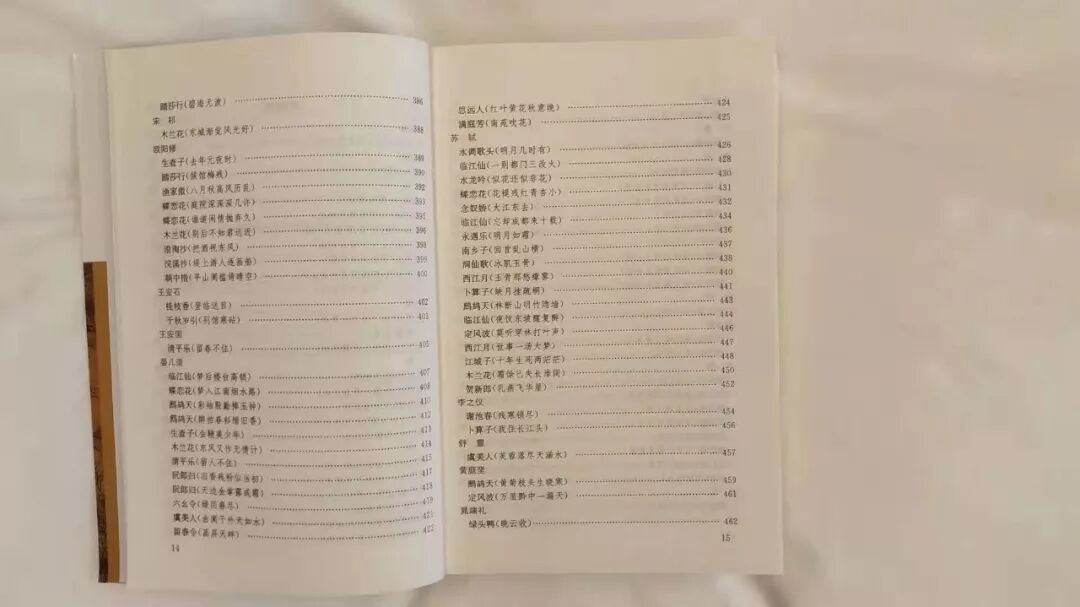 踏莎行(碧海无波) 386
宋 祁
木兰花(东城渐觉风光好) 388
欧阳修
生查子(去年元夜时) 389
踏莎行(候馆梅残) 390
渔家傲(八月秋高风历乱) 392
蝶恋花(庭院深深深几许) 393
蝶恋花(谁道闲情抛弃久) 395
木兰花(别后不知君远近) 396
浪淘沙(把酒祝东风) 398
浣溪沙(堤上游人逐画船) 399
朝中措(平山阑槛倚晴空) 400
王安石
桂枝香(登临送目) 402
千秋岁引(别馆寒砧) 403
王安国
清平乐(留春不住) 405
晏几道
临江仙(梦后楼台高锁) 407
蝶恋花(梦入江南烟水路) 408
鹧鸪天(彩袖殷勤捧玉钟) 410
鹧鸪天(醉拍春衫惜旧香) 412
生查子(金鞭美少年) 413
木兰花(东风又作无情计) 414
清平乐(留人不住) 415
阮郎归(旧香残粉似当初) 417
阮郎归(天边金掌露成霜) 418
六幺令(绿阴春尽) 419
虞美人(曲阑干外天如水) 421
留春令(画屏天畔) 422
14
思远人(红叶黄花秋意晚) 424
满庭芳(南苑吹花) 425
苏 轼
水调歌头(明月几时有) 426
临江仙(一别都门三改火) 428
水龙吟(似花还似非花) 430
蝶恋花(花褪残红青杏小) 431
念奴娇(大江东去) 432
临江仙(忘却成都来十载) 434
永遇乐(明月如霜) 436
南乡子(回首乱山横) 437
洞仙歌(冰肌玉骨) 438
西江月(玉骨那愁瘴雾) 440
卜算子(缺月挂疏桐) 441
鹧鸪天(林断山明竹隐墙) 443
临江仙(夜饮东坡醒复醉) 444
定风波(莫听穿林打叶声) 446
西江月(世事一场大梦) 447
江城子(十年生死两茫茫) 448
木兰花(霜馀已失长淮阔) 450
贺新郎(乳燕飞华屋) 452
李之仪
谢池春(残寒销尽) 454
卜算子(我住长江头) 456
舒 亶
虞美人(芙蓉落尽天涵水) 457
黄庭坚
鹧鸪天(黄菊枝头生晓寒) 459
定风波(万里黔中一漏天) 461
晁端礼
绿头鸭(晚云收) 462
15